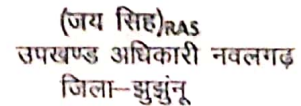 (जय सिह)RAS
उपखण्ड अधिकारी नवलगढ़
जिला-झुझुंनू